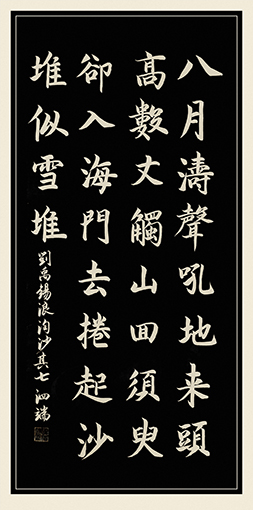 八月濤聲吼地来頭
高數丈觸山回須臾
卻入海門去捲起沙
堆似雪堆
劉禹錫浪淘沙其七 泗端